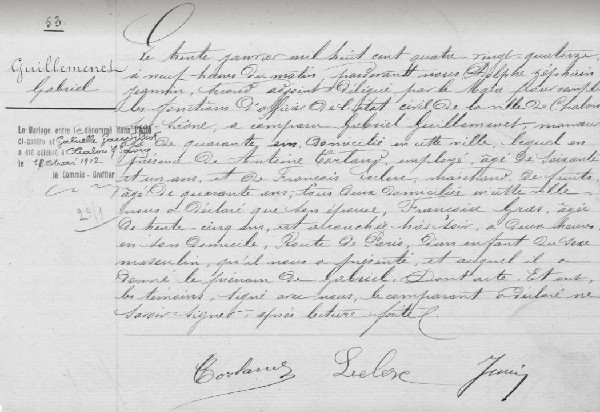 53
Guillemenet
Gabriel
Le Mariage entre le dénommé dans l'acte
ci-contre et Gabrielle
a été célébré à Chalon s/ Saône
le 1912
Le Commis-Greffier
Le trente janvier mil huit cent quatre vingt quatorze,
à neuf heures du matin, pardevant nous Adolphe Zéphirin
Jeannin, second adjoint délégué par le Maire pour remplir
les fonctions d'officier de l'état civil de la ville de Chalon
sur Saône, a comparu Gabriel Guillemenet, manœuvre
âgé de quarante ans, domicilié en cette ville, lequel en
présence de Antoine Corland, employé, âgé de soixante
et un ans, et de François Leclerc, marchand de fruits,
âgé de quarante ans, tous deux domiciliés en cette ville
nous a déclaré que son épouse, Françoise Gras, âgée
de trente-cinq ans, est accouchée hier soir, à deux heures,
en son domicile, Route de Paris, d'un enfant du sexe
masculin, qu'il nous a présenté, et auquel il a
donné le prénom de Gabriel. Dont acte. Et ont,
les témoins, signé avec nous, le comparant a déclaré ne
savoir signer, après lecture faite.
Leclerc